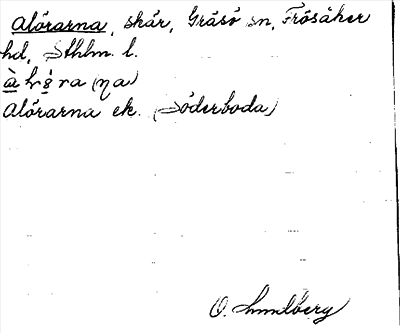 Alörarna, skär, Gräsö sn, Frösåker
hd, Sthlm l.
Alörarna ek. (Söderboda)
O. Lundberg